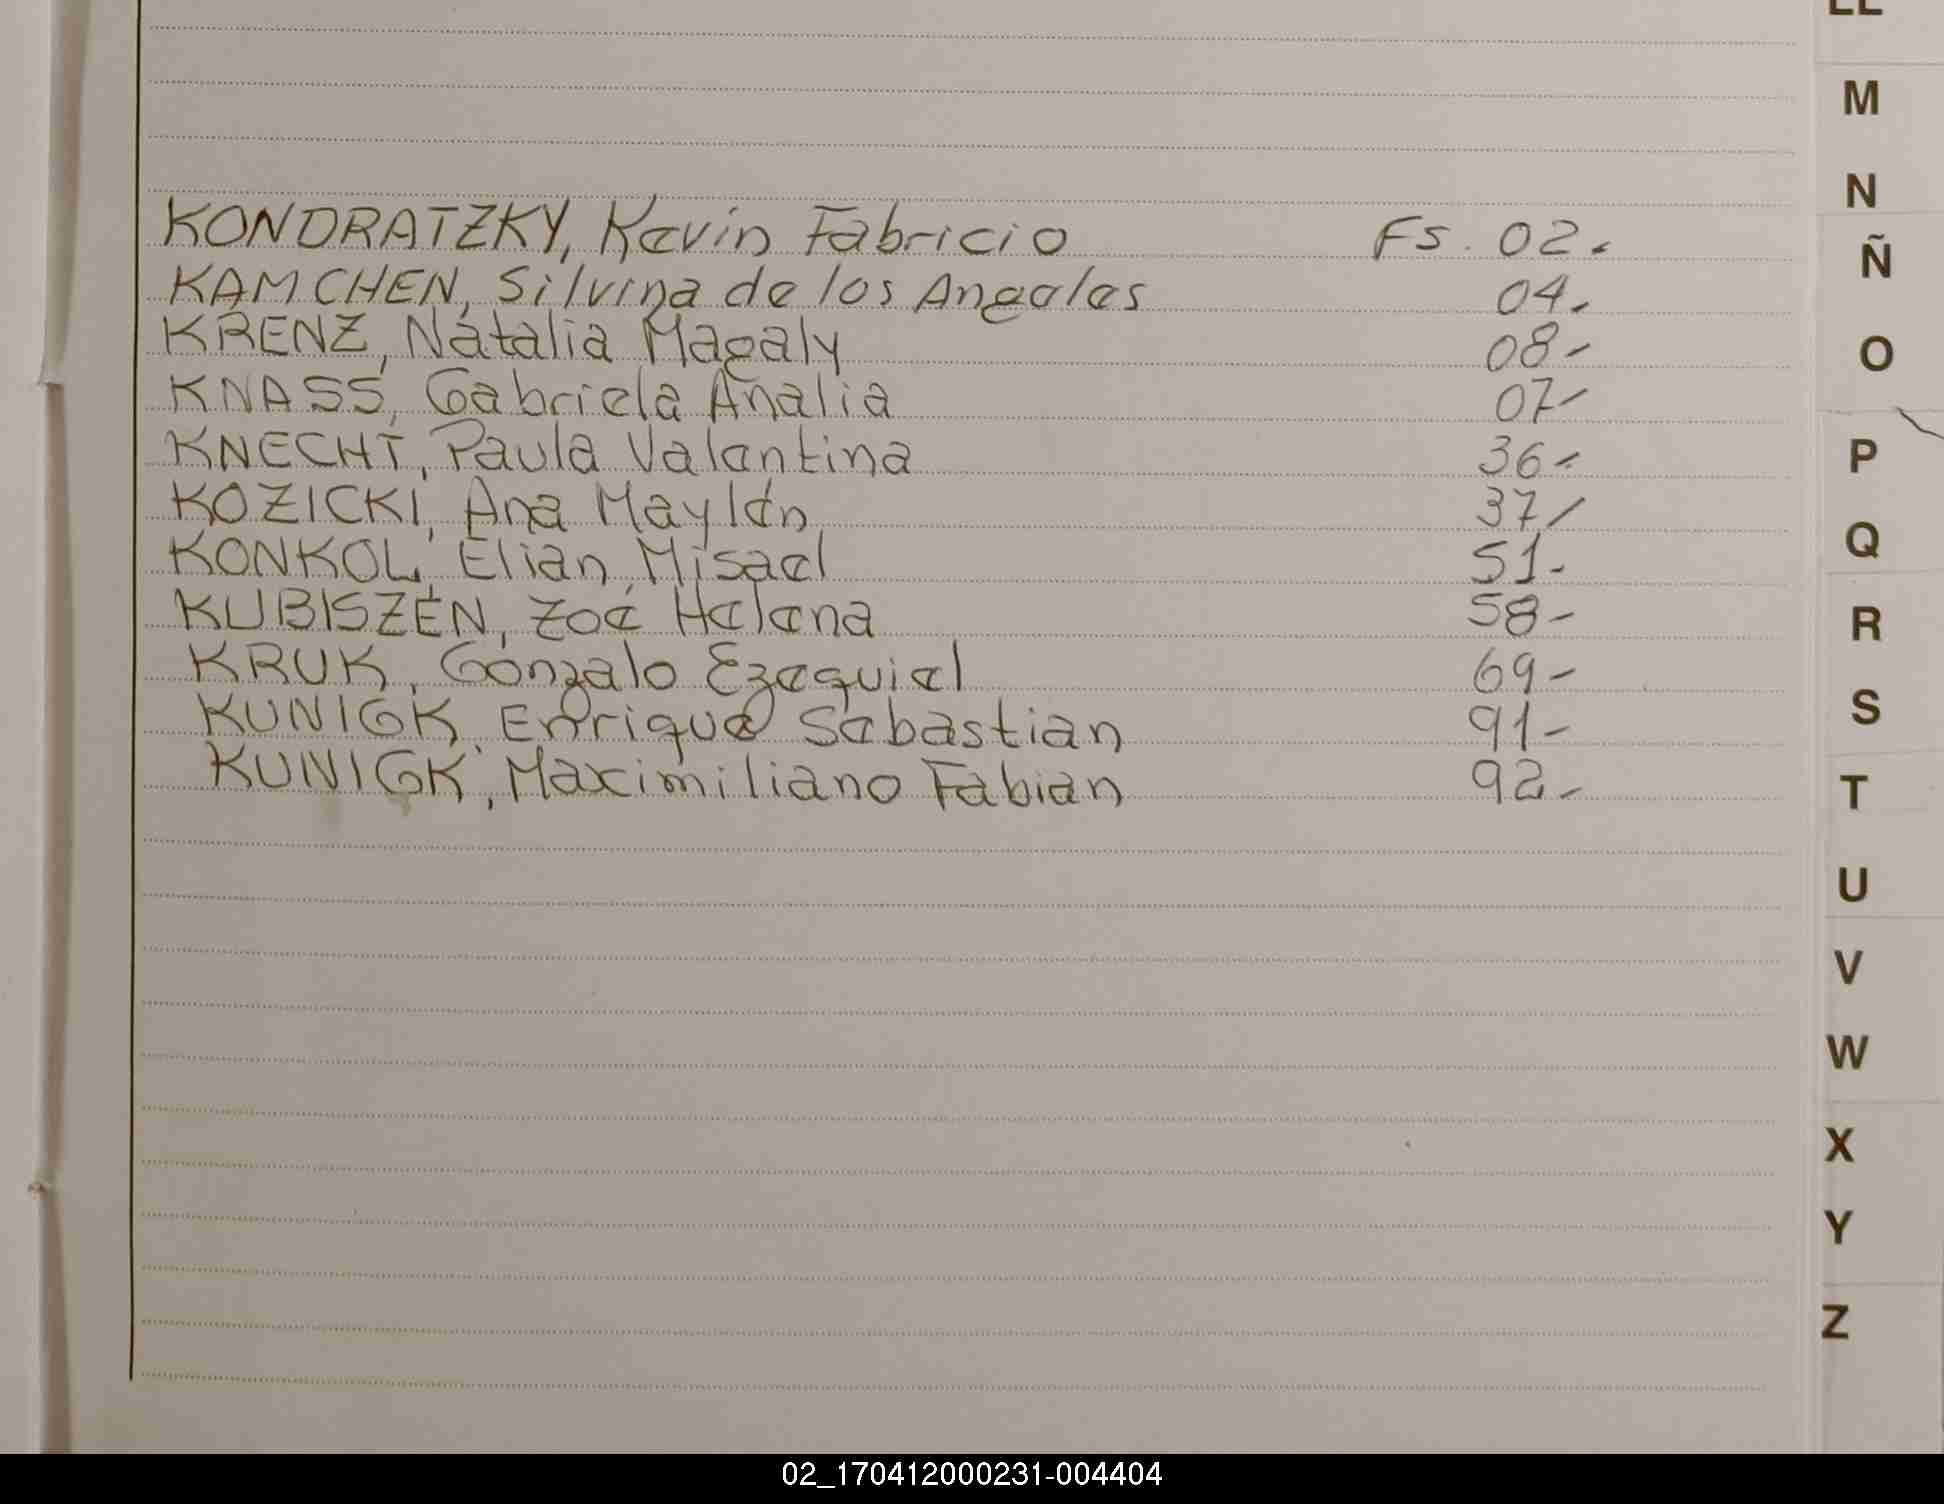 LL
M
N
Ñ
O
P
Q
R
S
T
U
V
W
X
Y
Z
KONDRATZKY, Kevin Fabricio Fs. 02.
KAMCHEN, Silvina de los Angeles 04.
KRENZ, Natalia Magaly 08-
KNASS, Gabriela Analia 07-
KNECHT, Paula Valentina 36-
KOZICKI, Ana Maylén 37/
KONKOL, Elian Misael 51-
KUBISZEN, Zoé Helena 58-
KRUK, Gonzalo Ezequiel 69-
KUNIGK, Enrique Sebastian 91-
KUNIGK, Maximiliano Fabian 92-
02_170412000231-004404